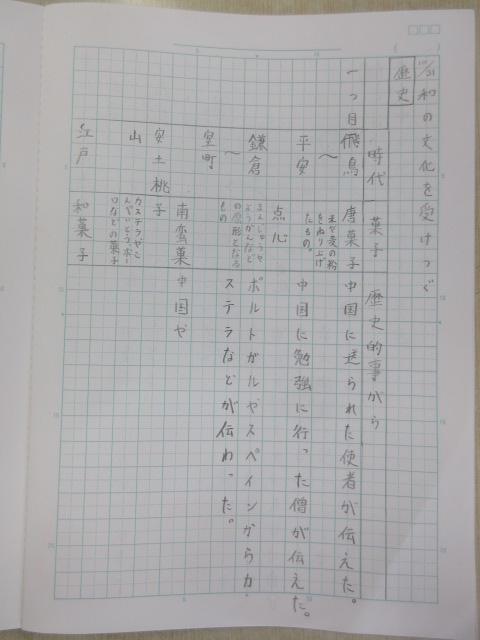 10/21 和の文化を受けつぐ
歴史
時代 菓子 歴史的事がら
一つ目 飛鳥〜平安 唐菓子 中国に送られた使者が伝えた。
米や麦の粉
をねり上げ
たもの。
鎌倉〜室町 点心 中国に勉強に行った僧が伝えた。
まんじゅうや
ようかんなど
の原形となる
もの
安土桃山 南蛮菓子 ポルトガルやスペインからカ
ステラなどが伝わった。
カステラやこ
んぺいとう、ボー
ロなどの菓子
江戸 和菓子 中国や